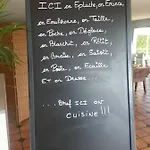 ICI on Epluche, on Emince,
on Emulsionne, on Taille,
on Poche, on Déglace,
on Blanchit, on Rôtit,
on Concise, on Saisit,
on Poêle, on Ecaille
Et on Dresse...
...bref ICI on
CUISINE !!!